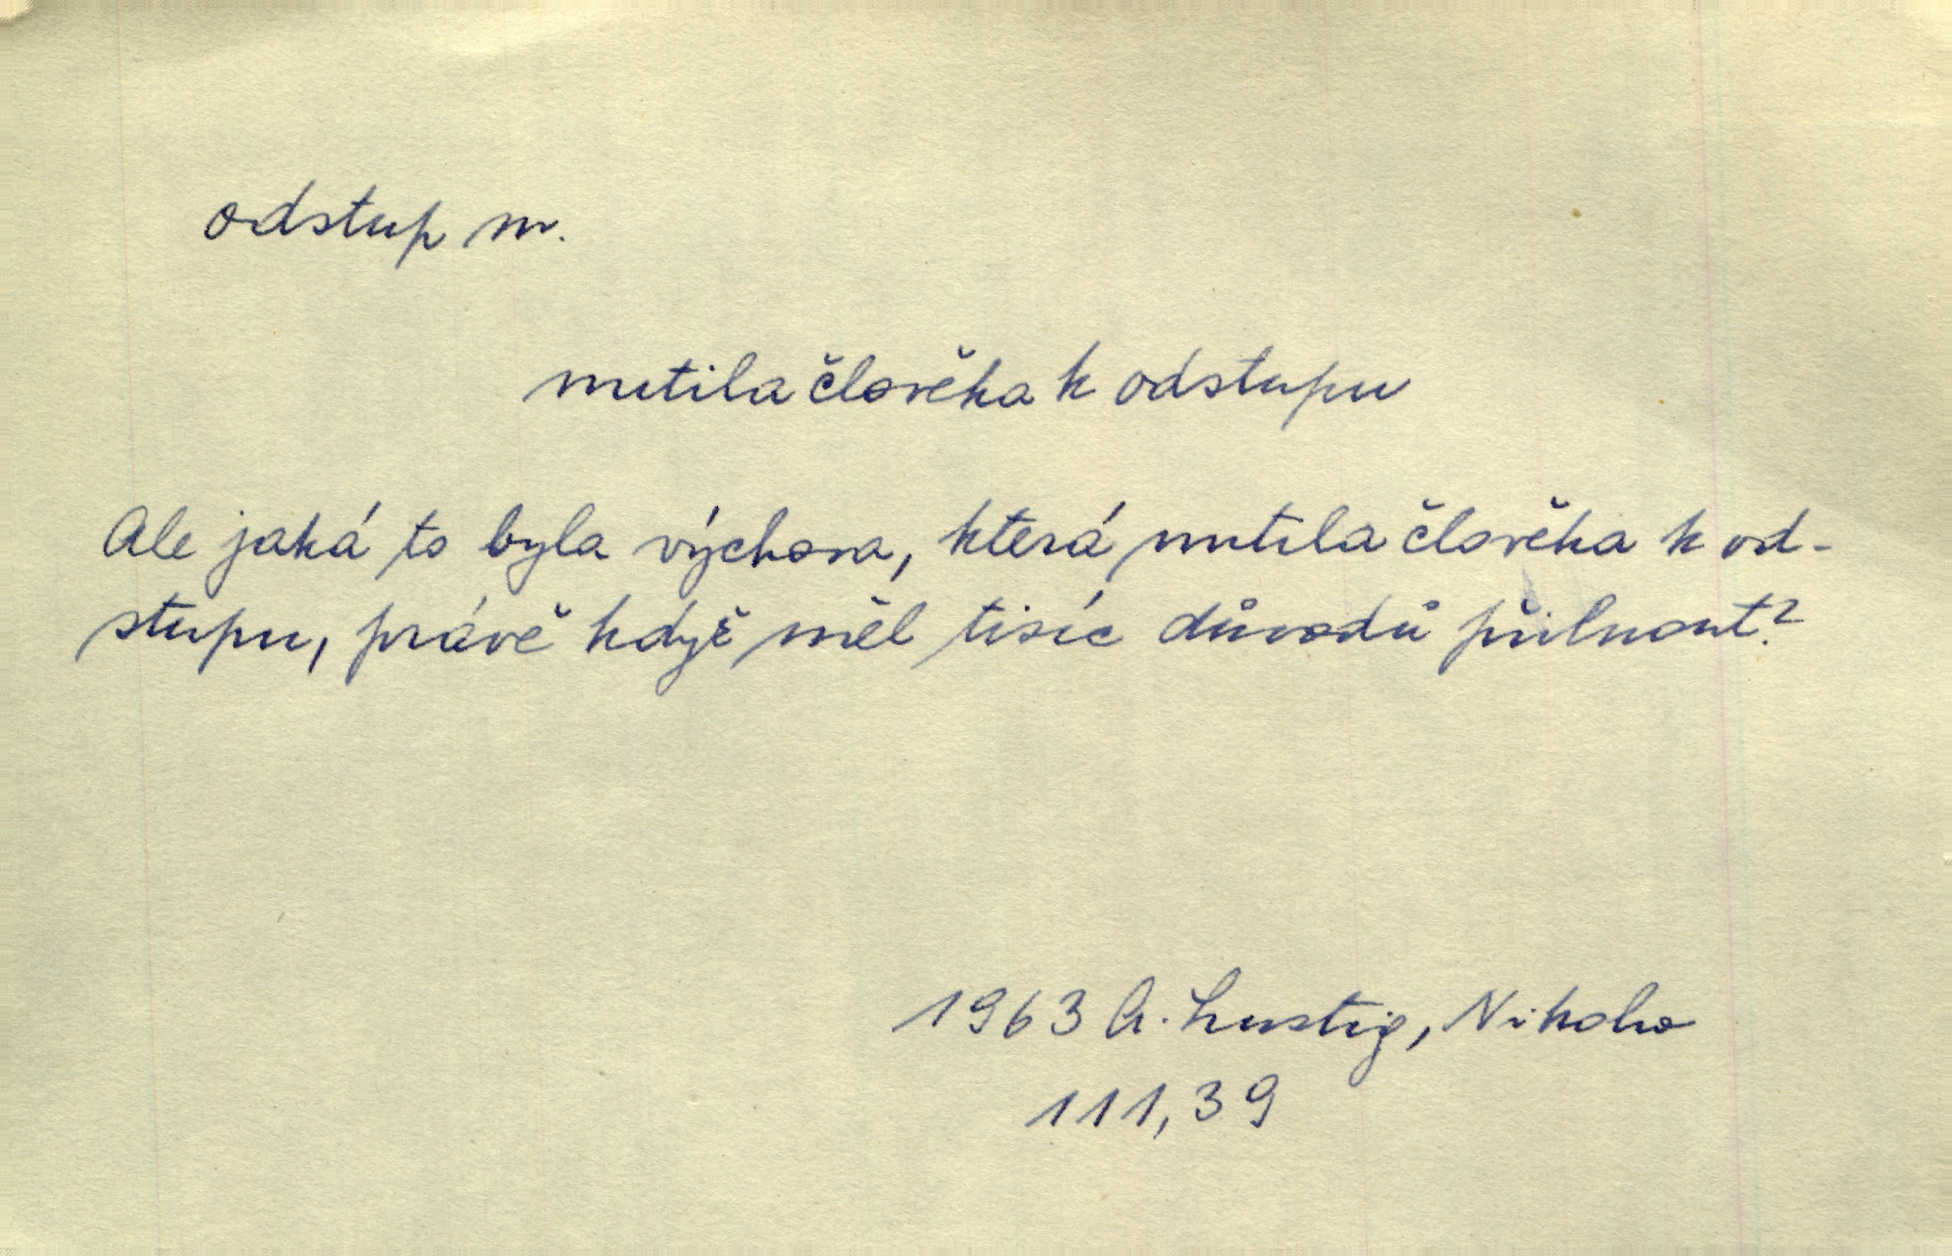 odstup m.
nutila člověka k odstupu
Ale jaká to byla výchova, která nutila člověka k od-
stupu, právě když měl tisíc důvodů přilnout?
1963 A. Lustig, Nikoho
111,39